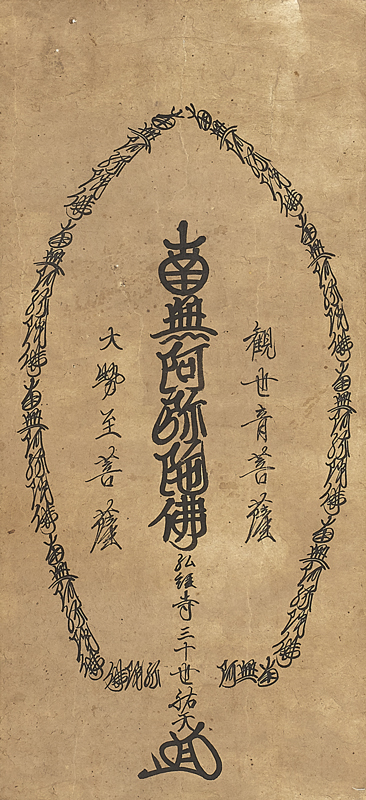 南無阿弥陀佛
弘経寺三十世祐天
觀世音菩薩
大勢至菩薩
南無阿弥陀佛
南無阿弥陀佛
南無阿弥陀佛
南無阿弥陀佛
南無阿弥陀佛
南無阿弥陀佛
南無阿弥陀佛
南無阿弥陀佛
南無阿弥陀佛